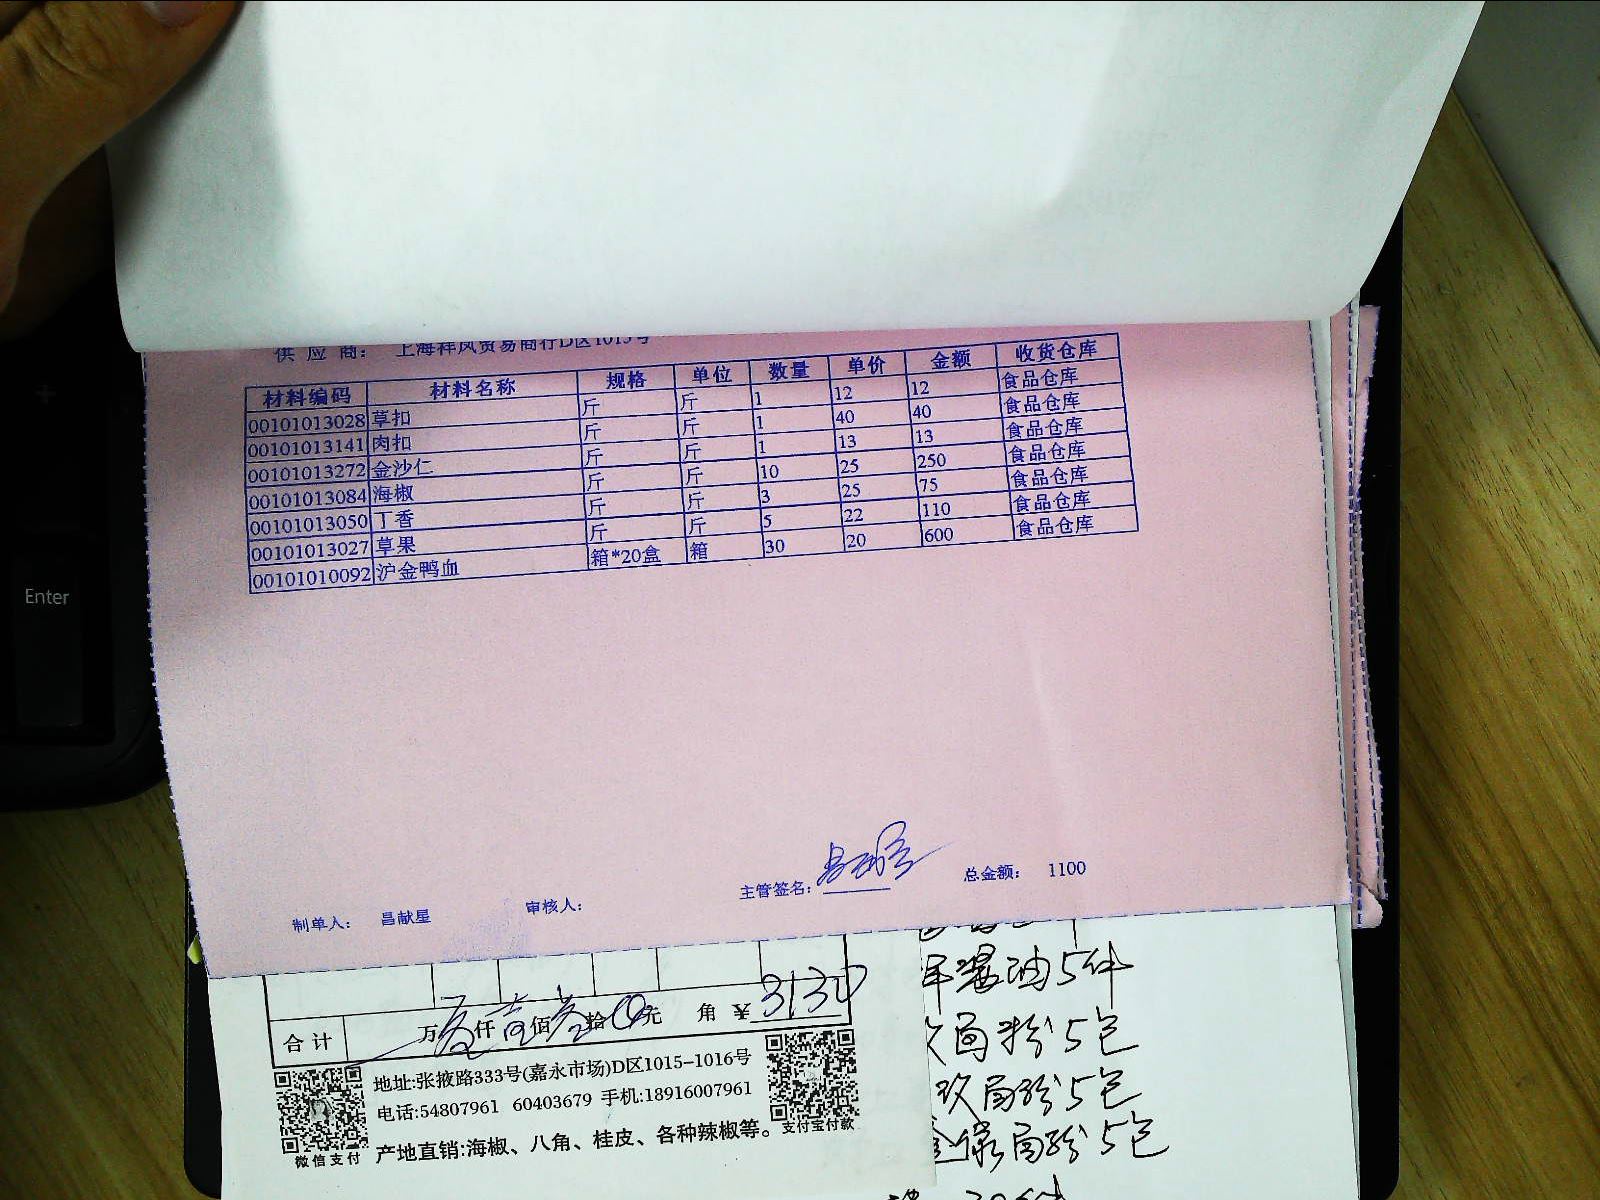 供 应 商： 上海祥凤贸易商行D区1015号
材料编码 材料名称 规格 单位 数量 单价 金额 收货仓库
00101013028 草扣 斤 斤 1 12 12 食品仓库
00101013141 肉扣 斤 斤 1 40 40 食品仓库
00101013272 金沙仁 斤 斤 1 13 13 食品仓库
00101013084 海椒 斤 斤 10 25 250 食品仓库
00101013050 丁香 斤 斤 3 25 75 食品仓库
00101013027 草果 斤 斤 5 22 110 食品仓库
00101010092 沪金鸭血 箱*20盒 箱 30 20 600 食品仓库
制单人： 昌献星 审核人： 主管签名： 总金额： 1100
酱油5件
粉5包
局粉5包
局粉5包
合计 万 仟 佰 拾 元 角 ¥3130
地址:张掖路333号(嘉永市场)D区1015-1016号
电话:54807961 60403679 手机:18916007961
产地直销:海椒、八角、桂皮、各种辣椒等。
微信支付
支付宝付款
Enter